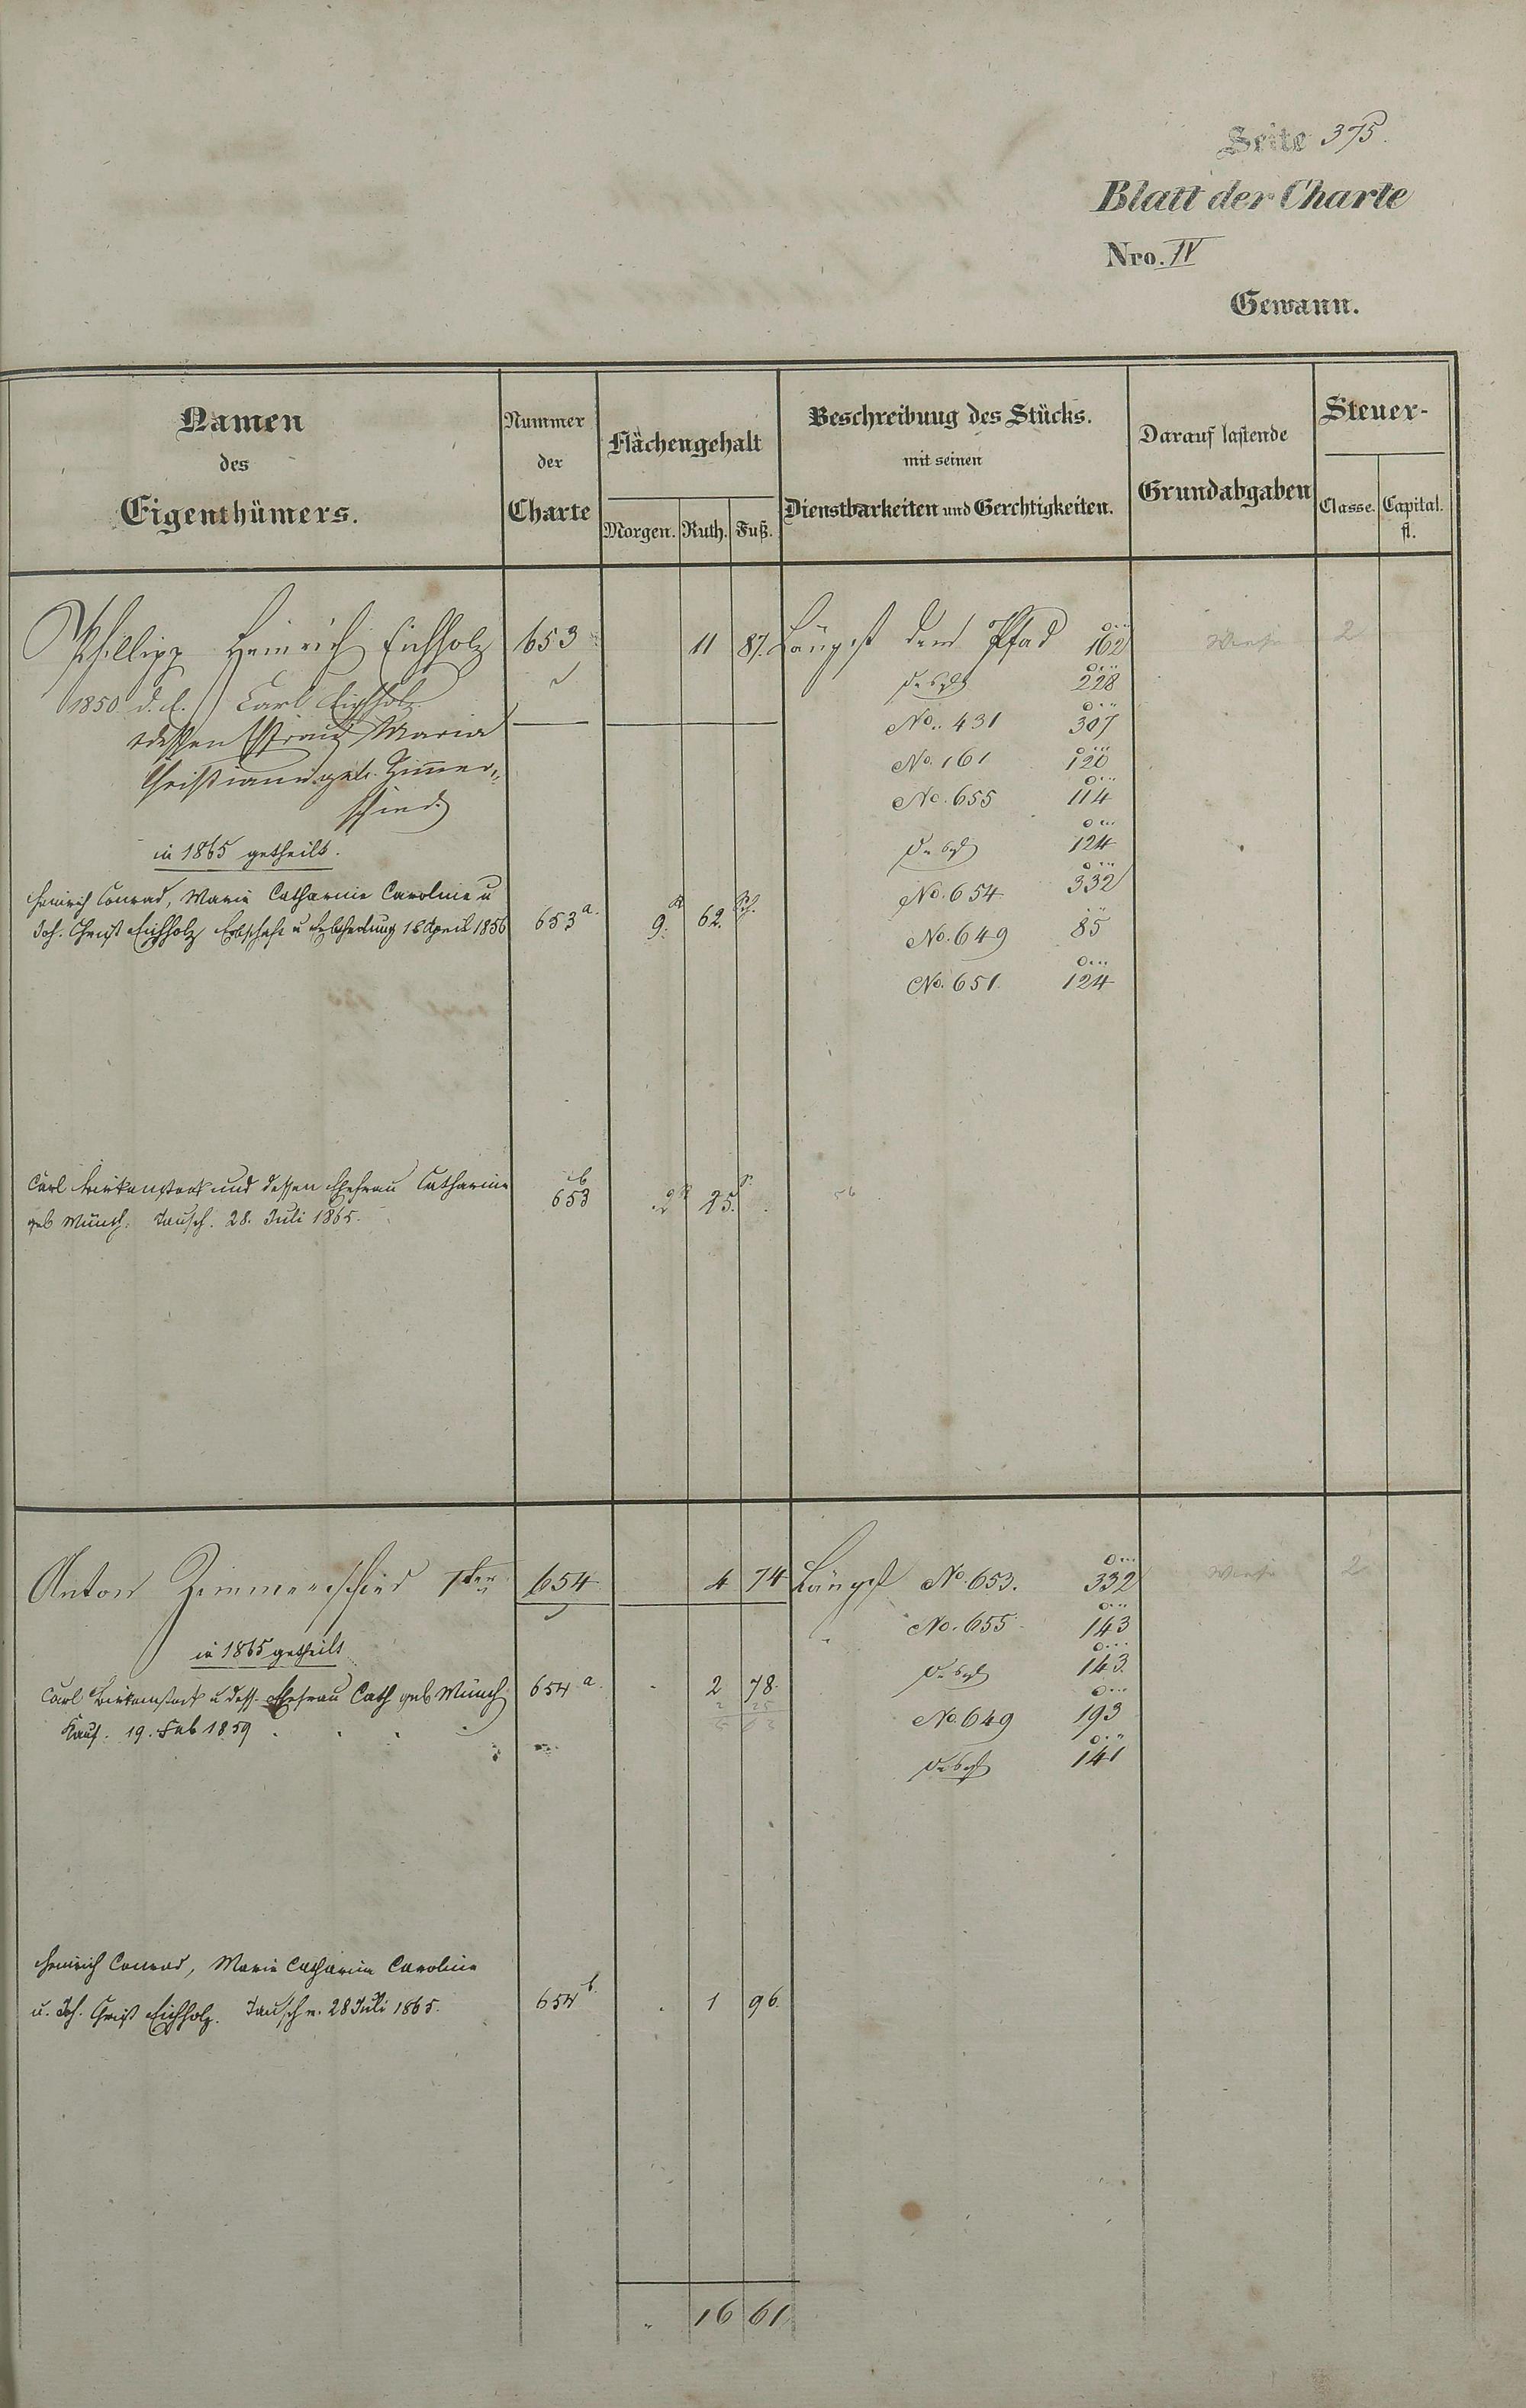 Seite 375.
Blatt der Charte
Nro. IV
Gewann.
Namen
des
Eigenthümers.
Nummer
der
Charte
Flächengehalt
Morgen. Ruth. Fuß.
Beschreibung des Stücks.
mit seinen
Dienstbarkeiten und Gerechtigkeiten.
Darauf lastende
Grundabgaben
Steuer-
Classe. Capital.
fl.
Phillipp Heinrich Eichholz 653 11 87. Längst dem Pfad 162 Wiese 2
1850 d. E. Carl Eichholz
dessen Ehefrau Maria
Christiane geb. Zimmer-
schied
desgl 228
No. 431 307
No. 161 120
No. 655 114
desgl 124
No. 654 332
No. 649 85
No. 651. 124
in 1865 getheilt.
Heinrich Conrad, Marie Catharine Caroline u
Joh. Christ Eichholz Erbschaft u 16 April 1856 653 a. 9. R 62. Sch.
Carl Birkenstock und dessen Ehefrau Catharine
geb Münch. Tausch. 28. Juli 1865. 653 b 2 R 25. 56
Anton Zimmerschied 1ter 654 4 74 Längst No. 653. 332 Wiese 2
No. 655 143
desgl 143.
No. 649 193
desgl 141
in 1865 getheilt
Carl Birkenstock u dess. Ehefrau Cath geb Münch 654 a. 2 78.
Kauf. 19. Feb 1859
2 25
5 03
Heinrich Conrad, Marie Catharine Caroline
u. Joh. Christ Eichholz. Tausch v. 28 Juli 1865. 654 b. 1 96.
16 61